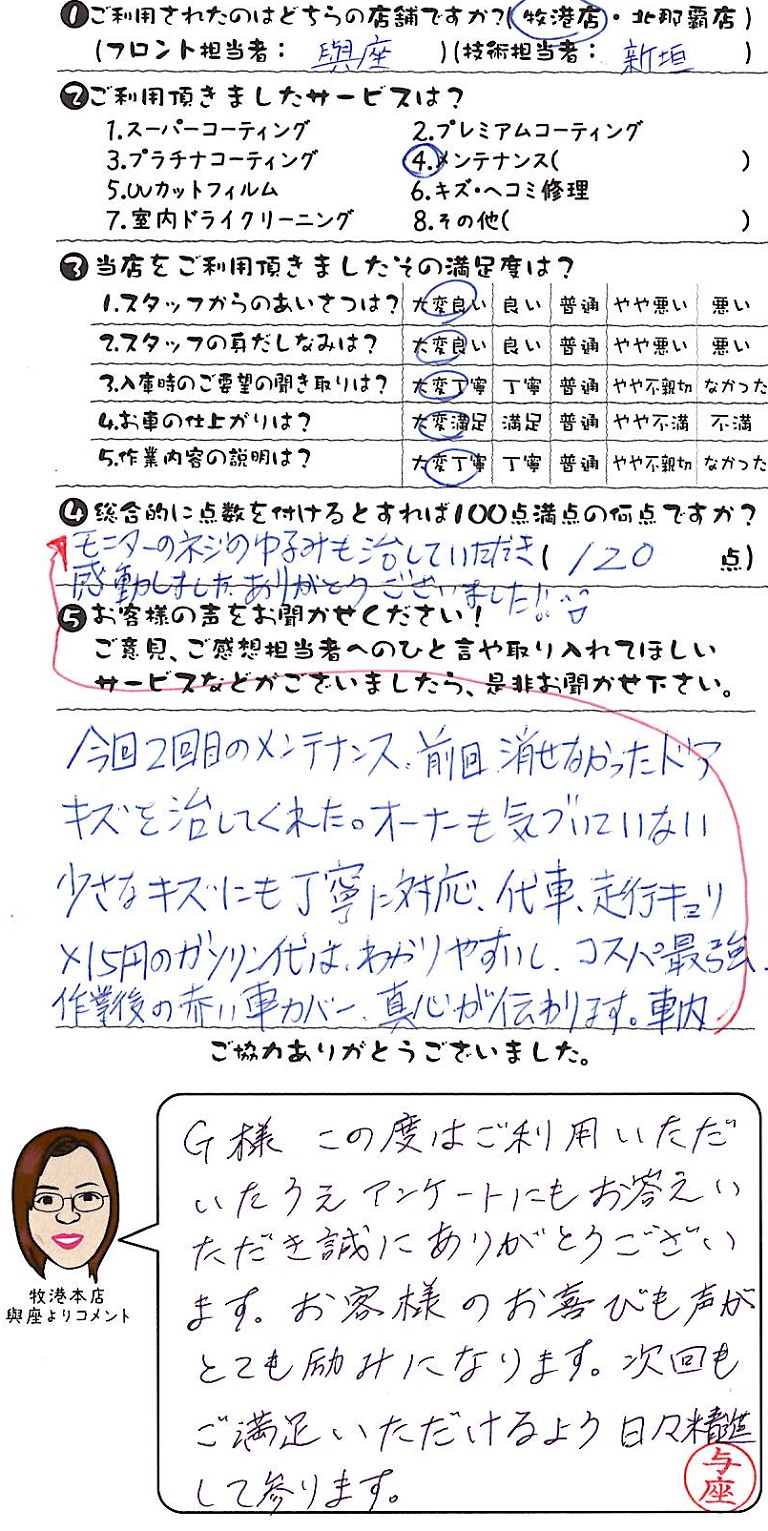 ❶ご利用されたのはどちらの店舗ですか?(牧港店・北那覇店)
(フロント担当者: 與座 )(技術担当者: 新垣 )
❷ご利用頂きましたサービスは?
1.スーパーコーティング 2.プレミアムコーティング
3.プラチナコーティング 4.メンテナンス( )
5.UVカットフィルム 6.キズ・ヘコミ修理
7.室内ドライクリーニング 8.その他( )
❸当店をご利用頂きましたその満足度は?
1.スタッフからのあいさつは? 大変良い 良い 普通 やや悪い 悪い
2.スタッフの身だしなみは? 大変良い 良い 普通 やや悪い 悪い
3.入庫時のご要望の聞き取りは? 大変丁寧 丁寧 普通 やや不親切 なかった
4.お車の仕上がりは? 大変満足 満足 普通 やや不満 不満
5.作業内容の説明は? 大変丁寧 丁寧 普通 やや不親切 なかった
❹総合的に点数を付けるとすれば100点満点の何点ですか?
モニターのネジのゆるみも治していただき( 120 点)
感動しました。ありがとうございました!!
❺お客様の声をお聞かせください!
ご意見、ご感想担当者へのひと言や取り入れてほしい
サービスなどがございましたら、是非お聞かせ下さい。
今回2回目のメンテナンス、前回消せなかったドア
キズを治してくれた。オーナーも気づいていない
少さなキズにも丁寧に対応、代車、走行キョリ
×15円のガソリン代は、わかりやすいし、コスパ最強、
作業後の赤い車カバー、真心が伝わります。車内
ご協力ありがとうございました。
G様 この度はご利用いただ
いたうえアンケートにもお答えい
ただき誠にありがとうござい
ます。お客様のお喜びも声が
とても励みになります。次回も
ご満足いただけるよう日々精進
して参ります。
与座
牧港本店
與座よりコメント